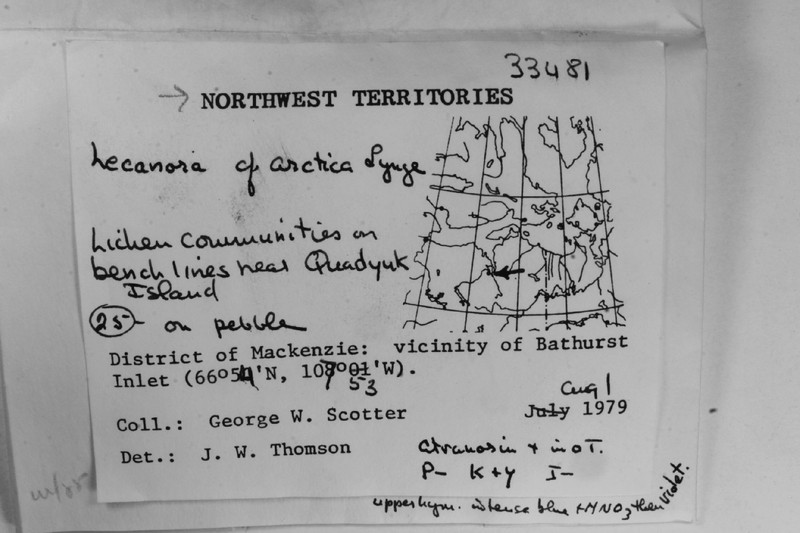 33481
→ NORTHWEST TERRITORIES
Lecanora cf arctica Lynge
Lichen communities on
bench lines near Quadyuk
Island
25- on pebble
District of Mackenzie: vicinity of Bathurst
Inlet (66°54'N, 107°53'W).
Aug 1
Coll.: George W. Scotter July 1979
Det.: J. W. Thomson
Atranorin + in oT.
P- K+y I-
upper hym. intense blue +HNO3 then violet.